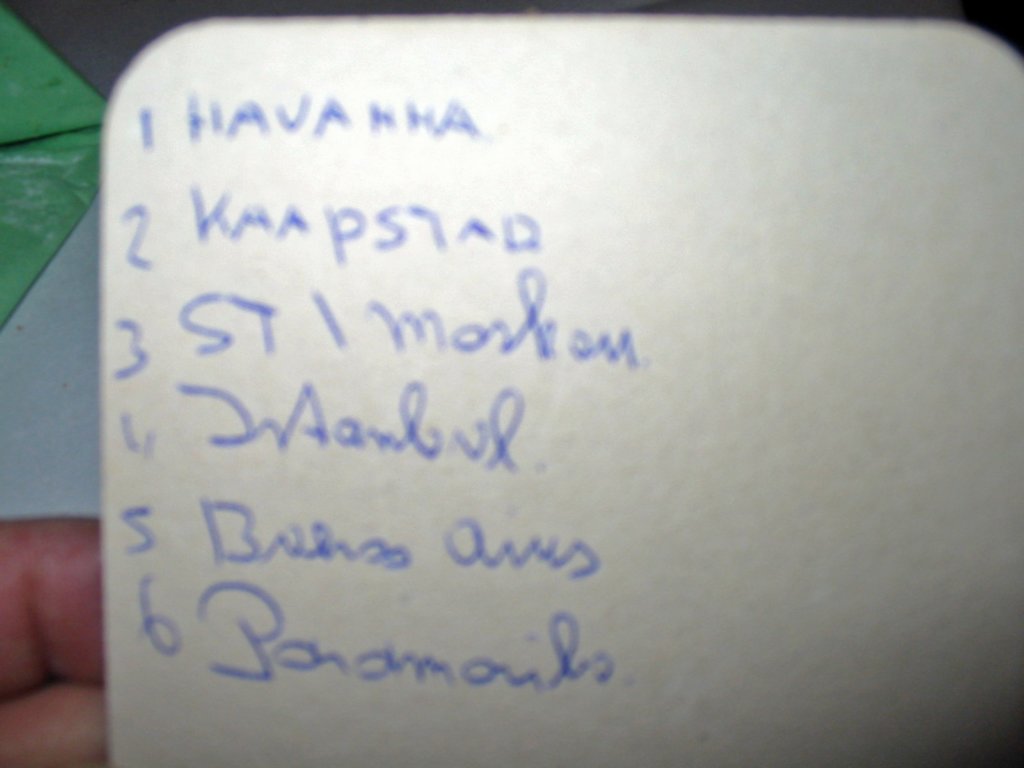 1 HAVANNA
2 KAAPSTAD
3 ST \ Moskou
4 Istanbul.
5 Buenos Aires
6 Paramaribo.